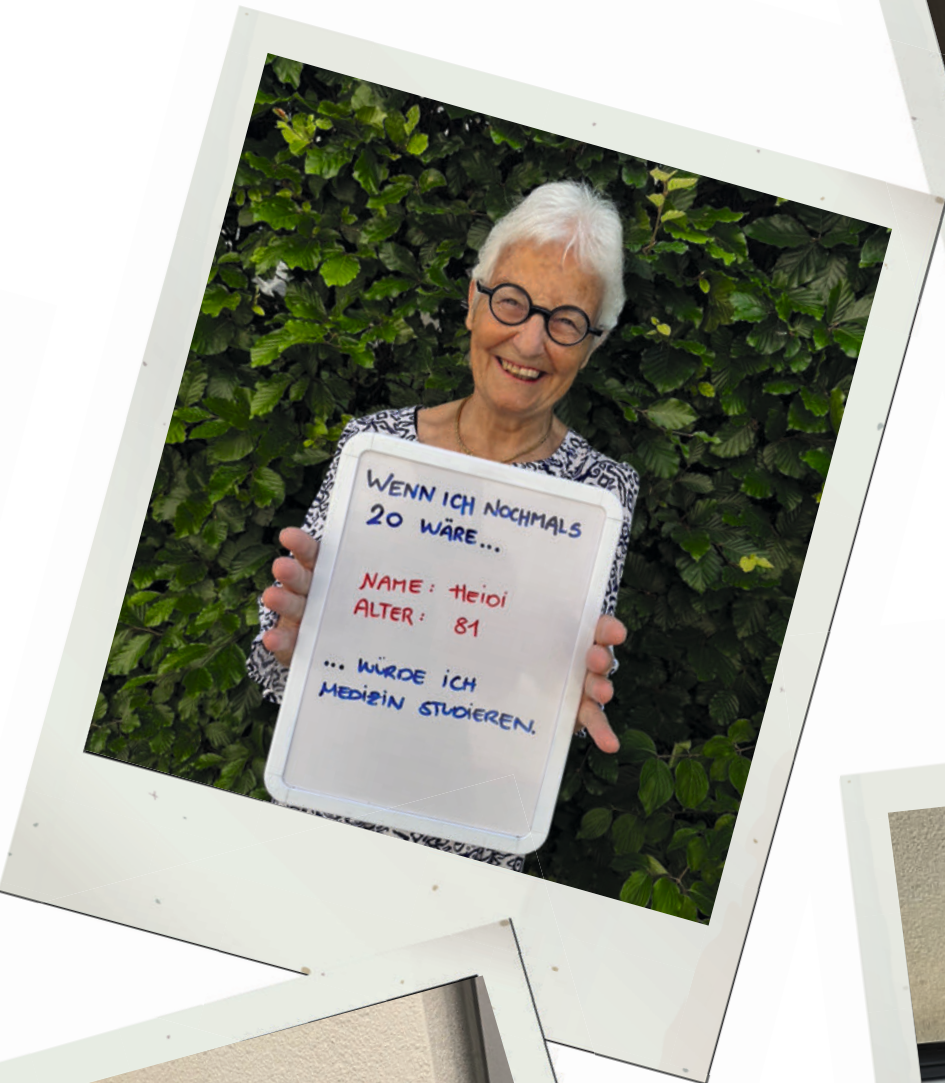 WENN ICH NOCHMALS
20 WÄRE...
NAME: HEIDI
ALTER: 81
... WÜRDE ICH
MEDIZIN STUDIEREN.